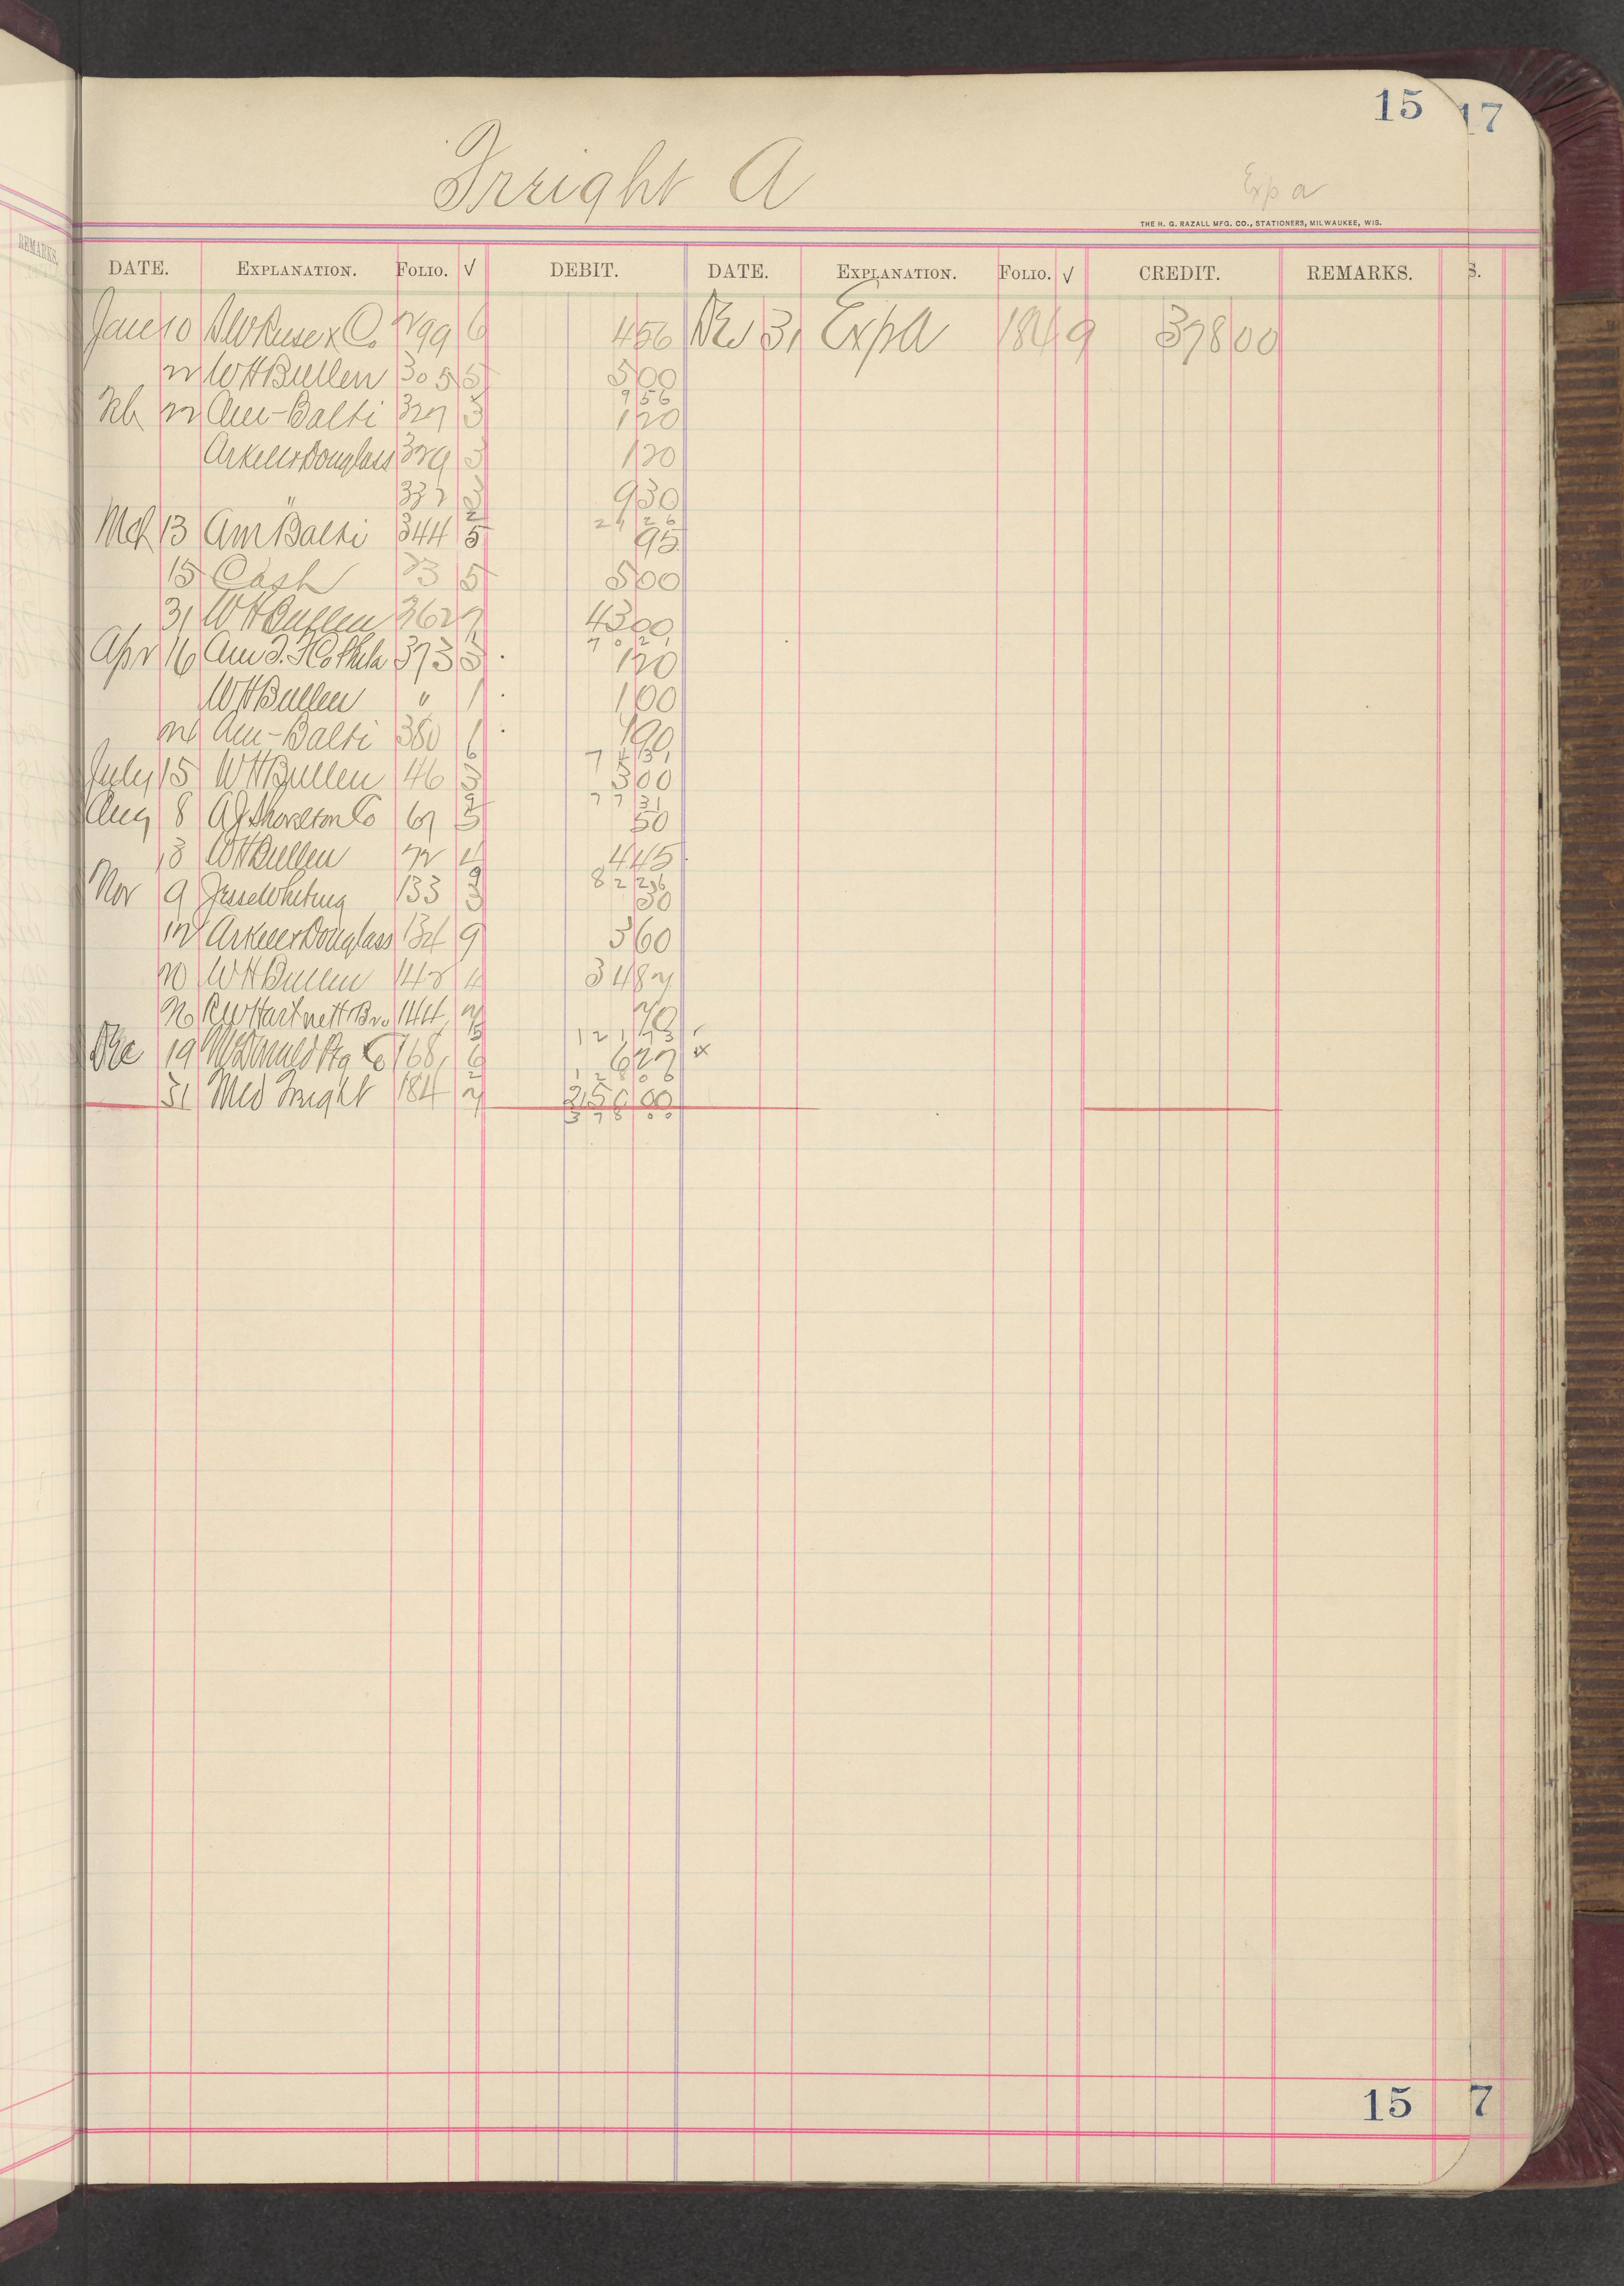 15 17
Freight A
Exp a
THE H. G. RAZALL MFG. CO., STATIONERS, MILWAUKEE, WIS.
REMARKS.
DATE. EXPLANATION. FOLIO. √ DEBIT. DATE. EXPLANATION. FOLIO. √ CREDIT. REMARKS. S.
Jan 10 & Co 299 6 4 56 Dec 31 Exp a 184 9 378 00
22 W H Bullen 305 5 5 00
9 56
Feb 22 Am - Balti 327 3 1 20
Arkell & Douglass 329 3 1 20
" 332 3 9 30
2 21 26
Mch 13 Am Balti 344 5 95
15 Cash 23 5 5 00
31 W H Bullen 362 7 43 00
70 21
Apr 16 Am T. F Co Phila 373 5 1 20
W H Bullen " 1 1 00
24 Am - Balti 380 1 1 90
6 74 31
July 15 W H Bullen 46 3 3 00
9 77 31
Aug 8 50
13 W H Bullen 72 4 4 45
9 82 26
Nov 9 Jesse Whiting 133 3 30
12 Arkell & Douglass 134 9 3 60
20 W H Bullen 142 4 34 87
26 R W Hartnett Bro 144 70
5 121 73
Dec 19 McDonald Co 168 6 6 27
2 128 00
31 Med Freight 184 2 250 00
378 00
15 7